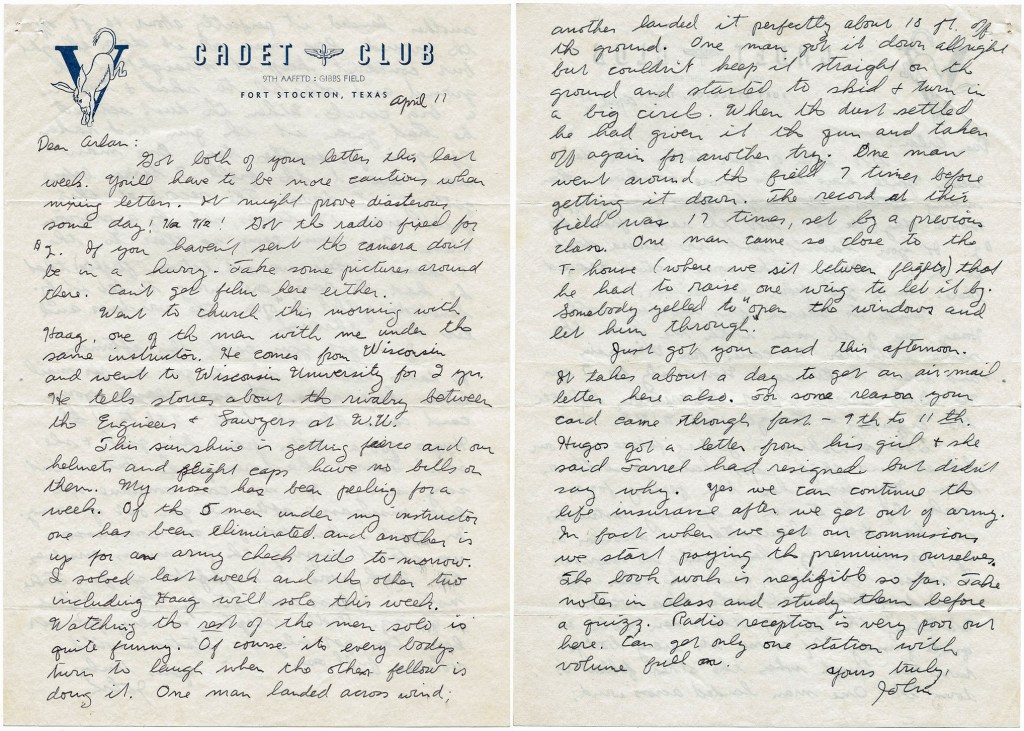 V
CADET CLUB
9TH AAFFTD : GIBBS FIELD
FORT STOCKTON, TEXAS
April 11
Dear Arlan:
Got both of your letters this last
week. You'll have to be more cautious when
mixing letters. It might prove disasterous
some day! Ha Ha! Got the radio fixed for
$2. If you haven't sent the camera don't
be in a hurry. Take some pictures around
there. Can't get film here either.
Went to church this morning with
Haag, one of the men with me under the
same instructor. He comes from Wisconsin
and went to Wisconsin University for 2 yrs.
He tells stories about the rivalry between
the Engineers & Sawyers at W.U.
This sunshine is getting fierce and our
helmets and flight caps have no bills on
them. My nose has been peeling for a
week. Of the 5 men under my instructor
one has been eliminated and another is
up for an army check ride to-morrow.
I soloed last week and the other two
including Haag will solo this week.
Watching the rest of the men solo is
quite funny. Of course its every bodys
turn to laugh when the other fellow is
doing it. One man landed across wind;
another landed it perfectly about 10 ft. off
the ground. One man got it down allright
but couldn't keep it straight on the
ground and started to skid & turn in
a big circle. When the dust settled
he had given it the gun and taken
off again for another try. One man
went around the field 7 times before
getting it down. The record at this
field was 17 times, set by a previous
class. One man came so close to the
T-house (where we sit between flights) that
he had to raise one wing to let it by.
Somebody yelled to "open the windows and
let him through."
Just got your card this afternoon.
It takes about a day to get an air-mail
letter here also. For some reason your
card came through fast - 9th to 11th.
Hugos got a letter from his girl & she
said Farrel had resigned but didn't
say why. Yes we can continue the
life insurance after we get out of army.
In fact when we get our commisions
we start paying the premiums ourselves.
The book work is negligible so far. Take
notes in class and study them before
a quizz. Radio reception is very poor out
here. Can get only one station with
volume full on.
Yours truly,
John